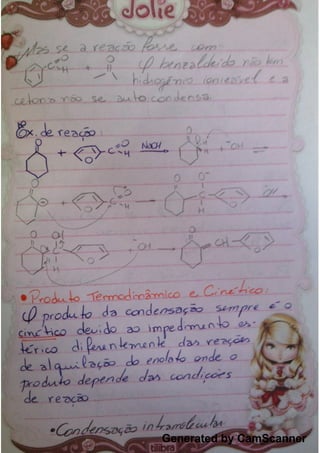 Jolie
Mas se a reação fosse com
O benzaldeído não tem
hidrogênio ionizável e a
cetona não se auto condensa.
Ex. de reação:
NaOH
• Produto Termodinâmico e Cinético:
O produto da condensação sempre é o
cinético devido ao impedimento es-
térico diferentemente das reações
de alquilação do enolato onde o
produto depende das condições
de reação
• Condensação intramolecular
Generated by CamScanner
tilibra